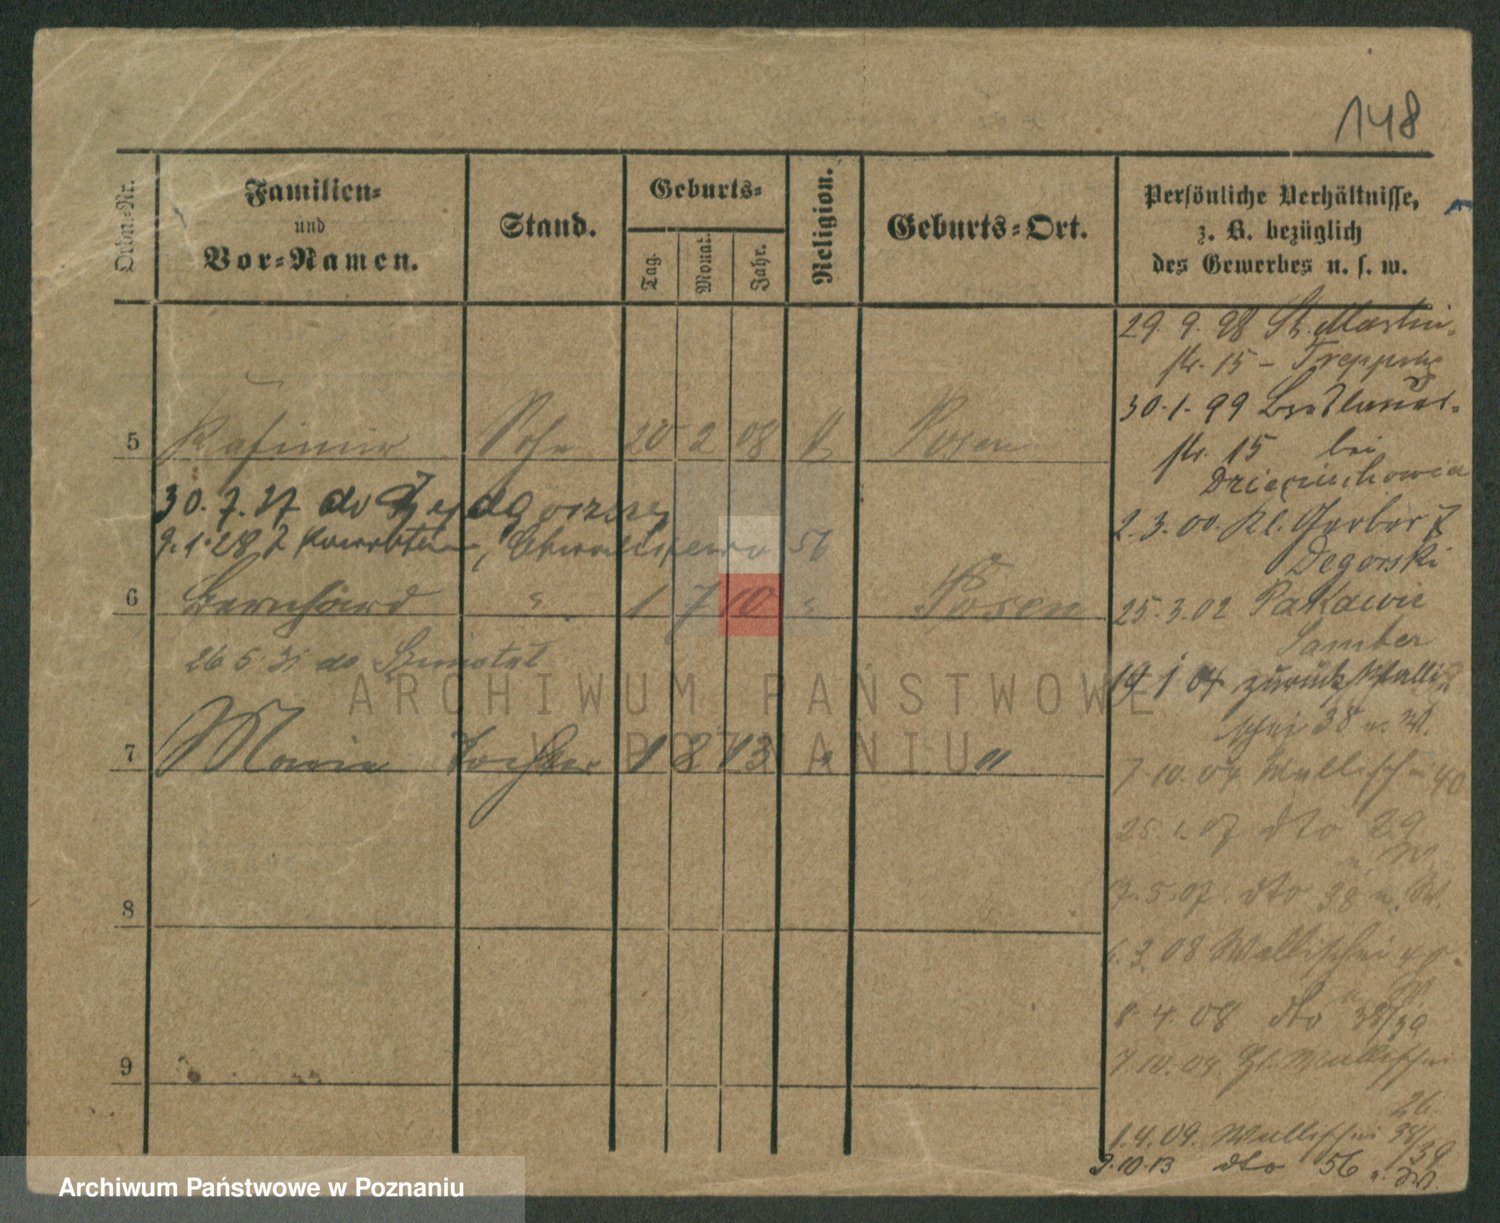 148
Ordn.-Nr.
Familien-
und
Vor-Namen.
Stand.
Geburts-
Tag.
Monat.
Jahr.
Religion.
Geburts-Ort.
Persönliche Verhältnisse,
z. B. bezüglich
des Gewerbes u. s. w.
5 Kasimir Sohn 20 2 08 Posen
30.7.27 do
9.1.28 z 56
6 Bernhard " 1 7 10 " Posen
26 5 31 do
7 Maria Tochter 1 8 13 " "
8
9
29. 9. 98 St. Martin-
str. 15 –
30. 1. 99 Breslauer-
str. 15 bei
2. 3. 00. Kl. Gerber 7
Degorski
25. 3. 02
Samter
19 1 04 zurück Walli-
schei 38 u. W.
7. 10. 04 Wallischei 40
25. 1. 07 dto 39
7. 5. 07. dto 38 u. W.
6. 3. 08 Wallischei 40.
8. 4. 08 dto 38/39
7. 10. 08. Wallischei
26
1. 4. 09. Wallischei 38/39
9. 10. 13 dto 56 u. W.
ARCHIWUM PAŃSTWOWE
W POZNANIU
Archiwum Państwowe w Poznaniu